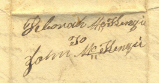 Deborah McKenzie
To
John McKenzie